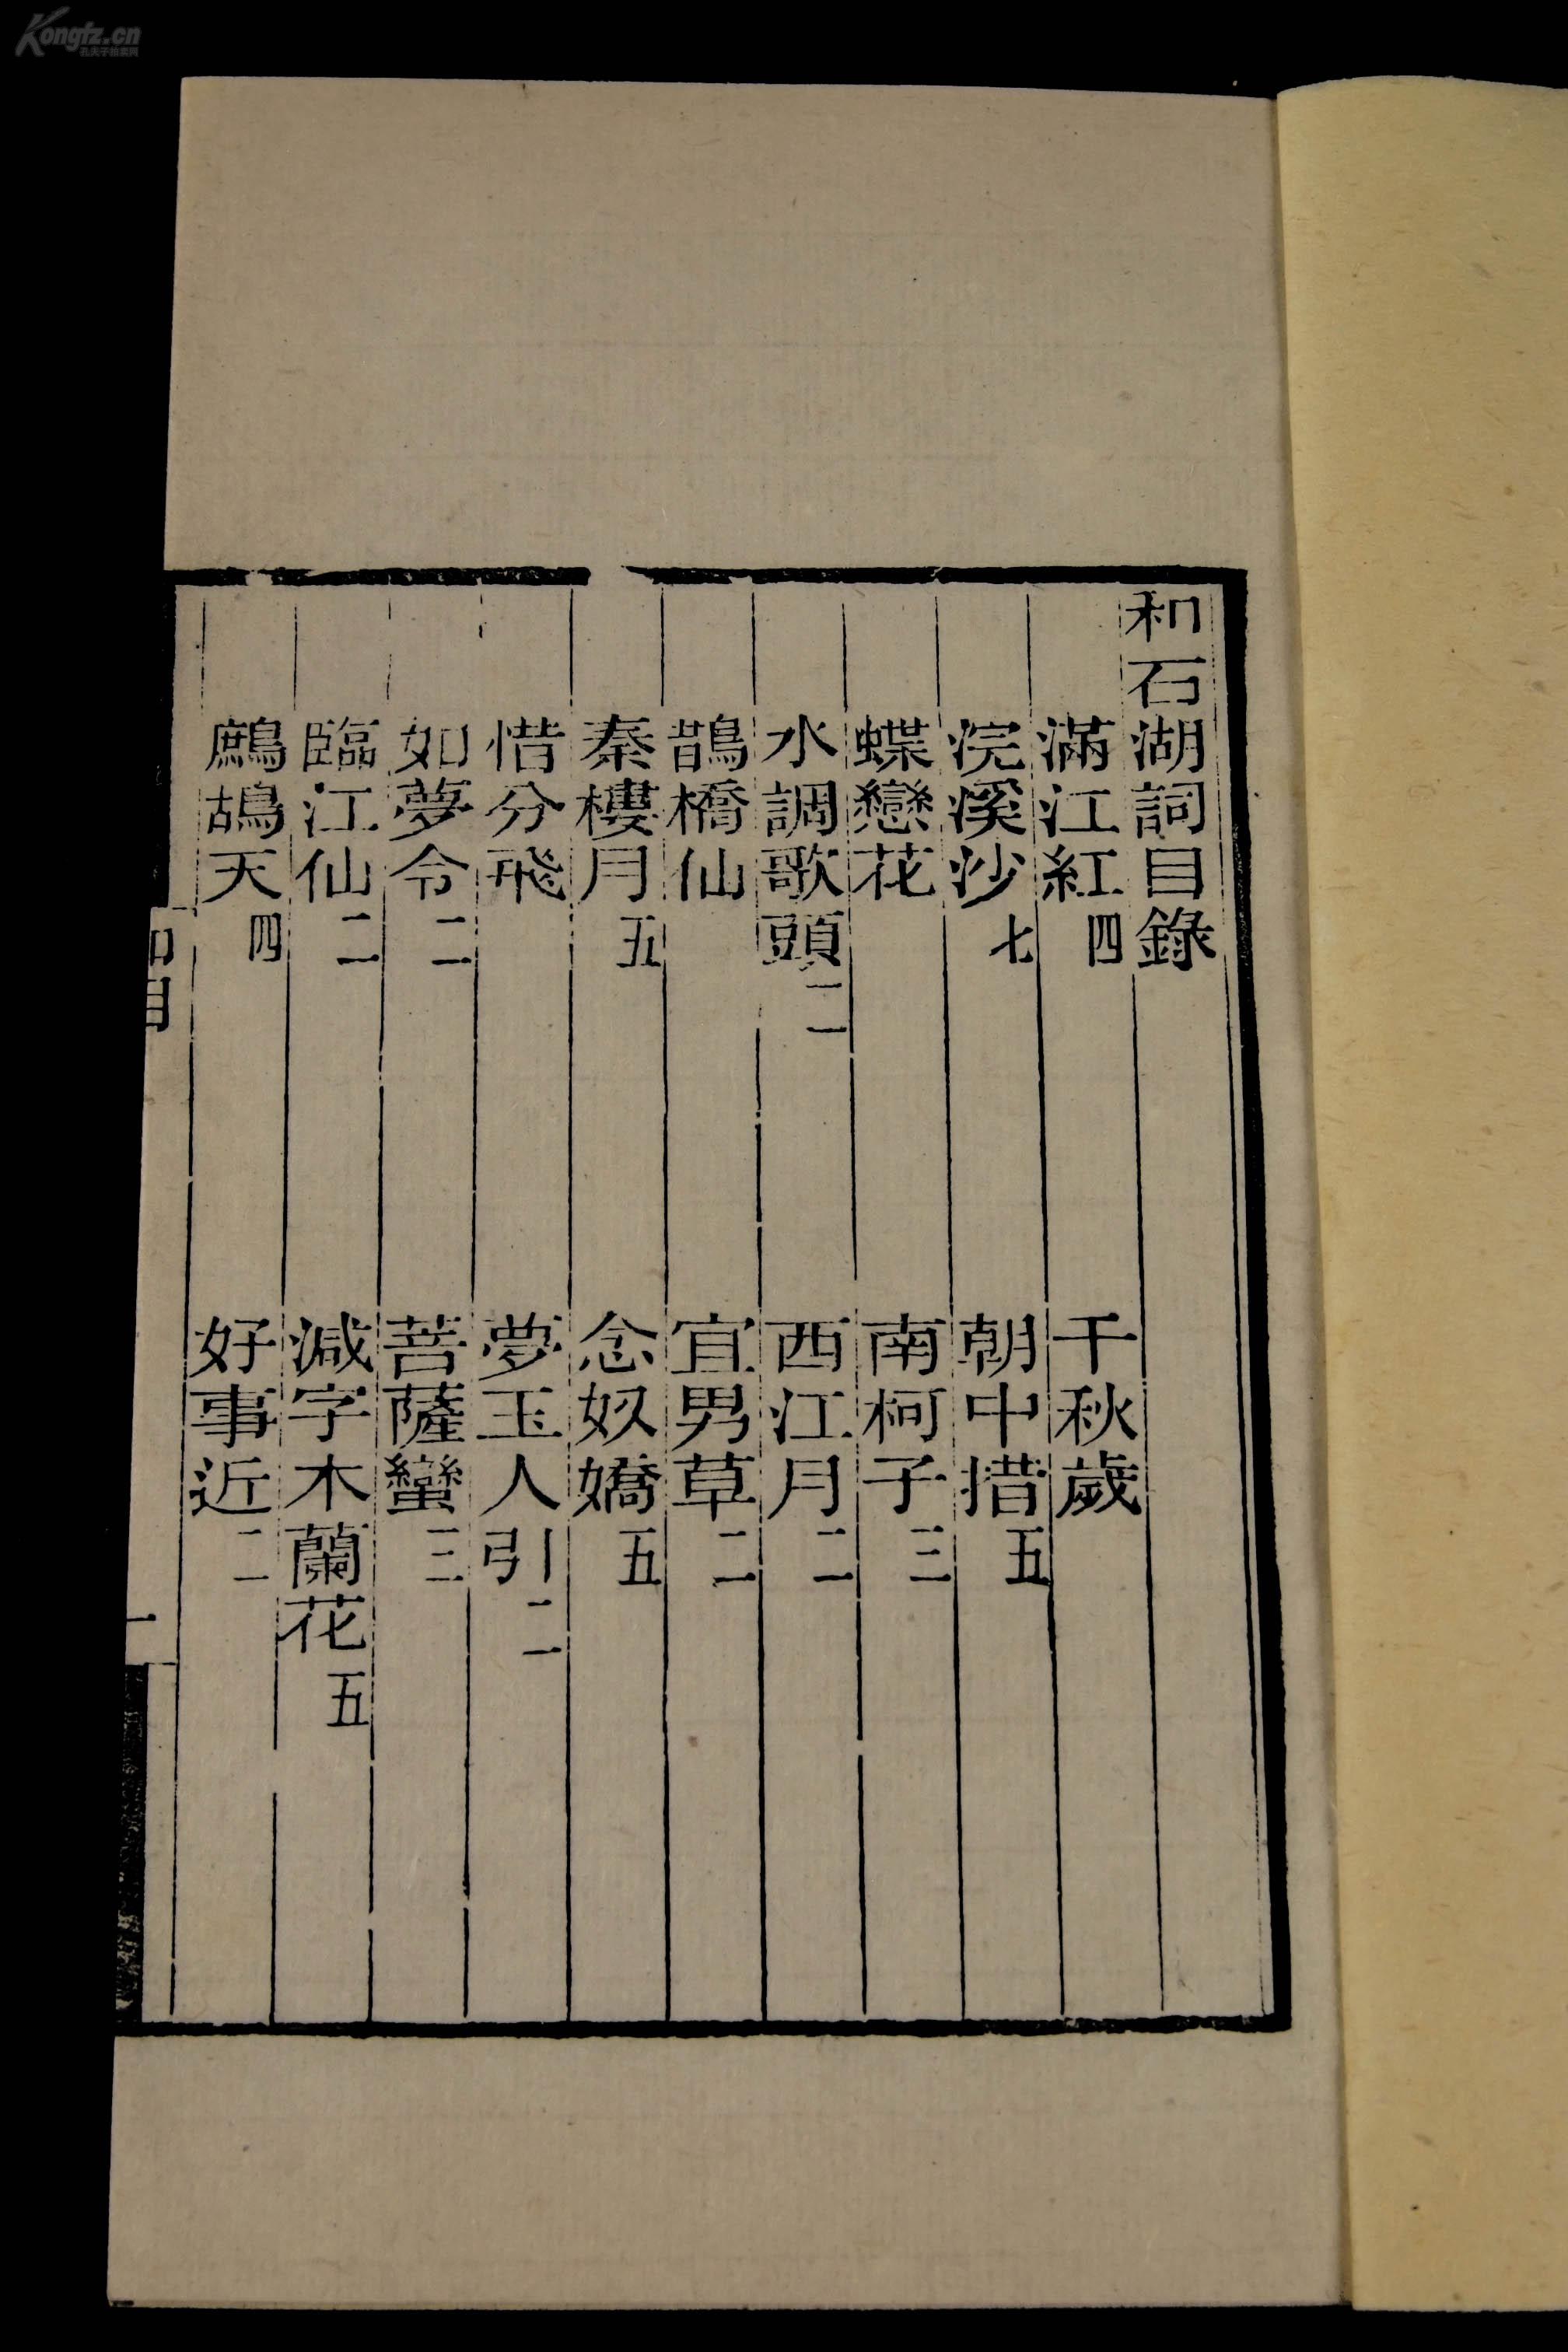 Kongfz.cn
孔夫子拍卖网
和石湖詞目錄
滿江紅四
千秋歲
浣溪沙七
朝中措五
蝶戀花
南柯子三
水調歌頭二
西江月二
鵲橋仙
宜男草二
秦樓月五
念奴嬌五
惜分飛
夢玉人引二
如夢令二
菩薩蠻三
臨江仙二
減字木蘭花五
鷓鴣天四
好事近二
和目
一